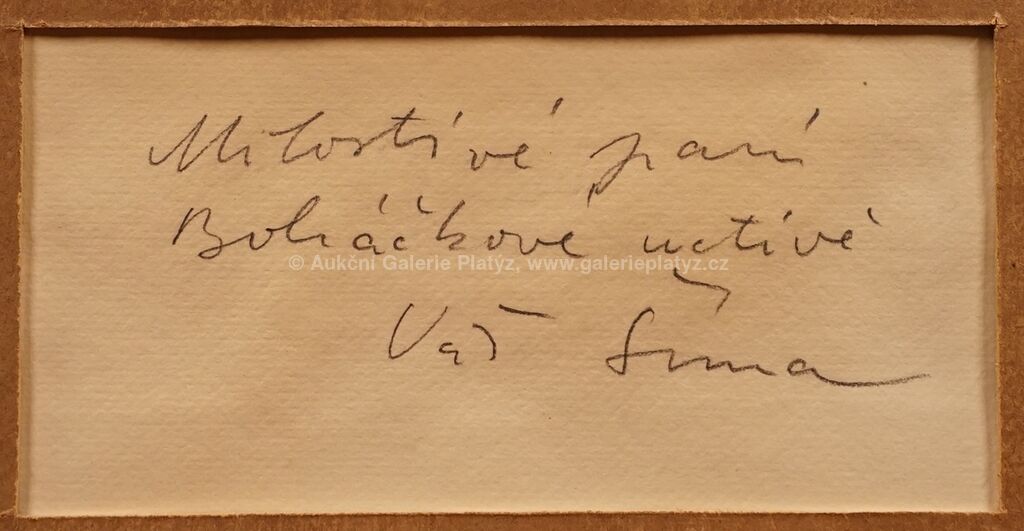 Milostivé paní
Boháčkové uctivě
© Aukční Galerie Platýz, www.galerieplatyz.cz
Váš Šíma